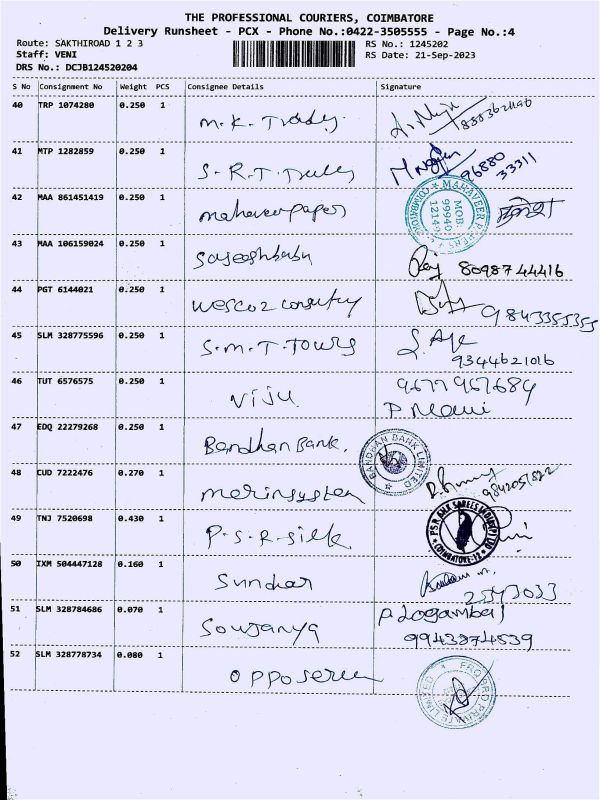 THE PROFESSIONAL COURIERS, COIMBATORE
Delivery Runsheet - PCX - Phone No.:0422-3505555 - Page No.:4
Route: SAKTHIROAD 1 2 3
RS No.: 1245202
Staff: VENI
RS Date: 21-Sep-2023
DRS No.: DCJB124520204
S No Consignment No Weight PCS Consignee Details Signature
40 TRP 1074280 0.250 1
M.K. Tradg
41 MTP 1282859 0.250 1
S.R.T. 96880
33311
42 MAA 861451419 0.250 1
mahaveerpaper
MAHAVEER PAPERS COIMBATORE
MOB
99940
43 MAA 106159024 0.250 1
Sajeeshbabu
Raj 8098744416
44 PGT 6144021 0.250 1
Wescoz
9843355355
45 SLM 328775596 0.250 1
S.M.T. Tours
9344621016
46 TUT 6576575 0.250 1
Viju
9677967684
P Mani
47 EDQ 22279268 0.250 1
Bandhan Bank.
BANDHAN BANK LIMITED
48 CUD 7222476 0.270 1
merinsystem
9842051822
49 TNJ 7520698 0.430 1
P.S.R. Silk
P.S.R. SILK SAREES INDIA (P) LTD
COIMBATORE-12
50 IXM 504447128 0.160 1
Sundar
51 SLM 328784686 0.070 1
Soujanya
P Logambal
9943874539
52 SLM 328778734 0.080 1
OPPO
PRIVATE LIMITED